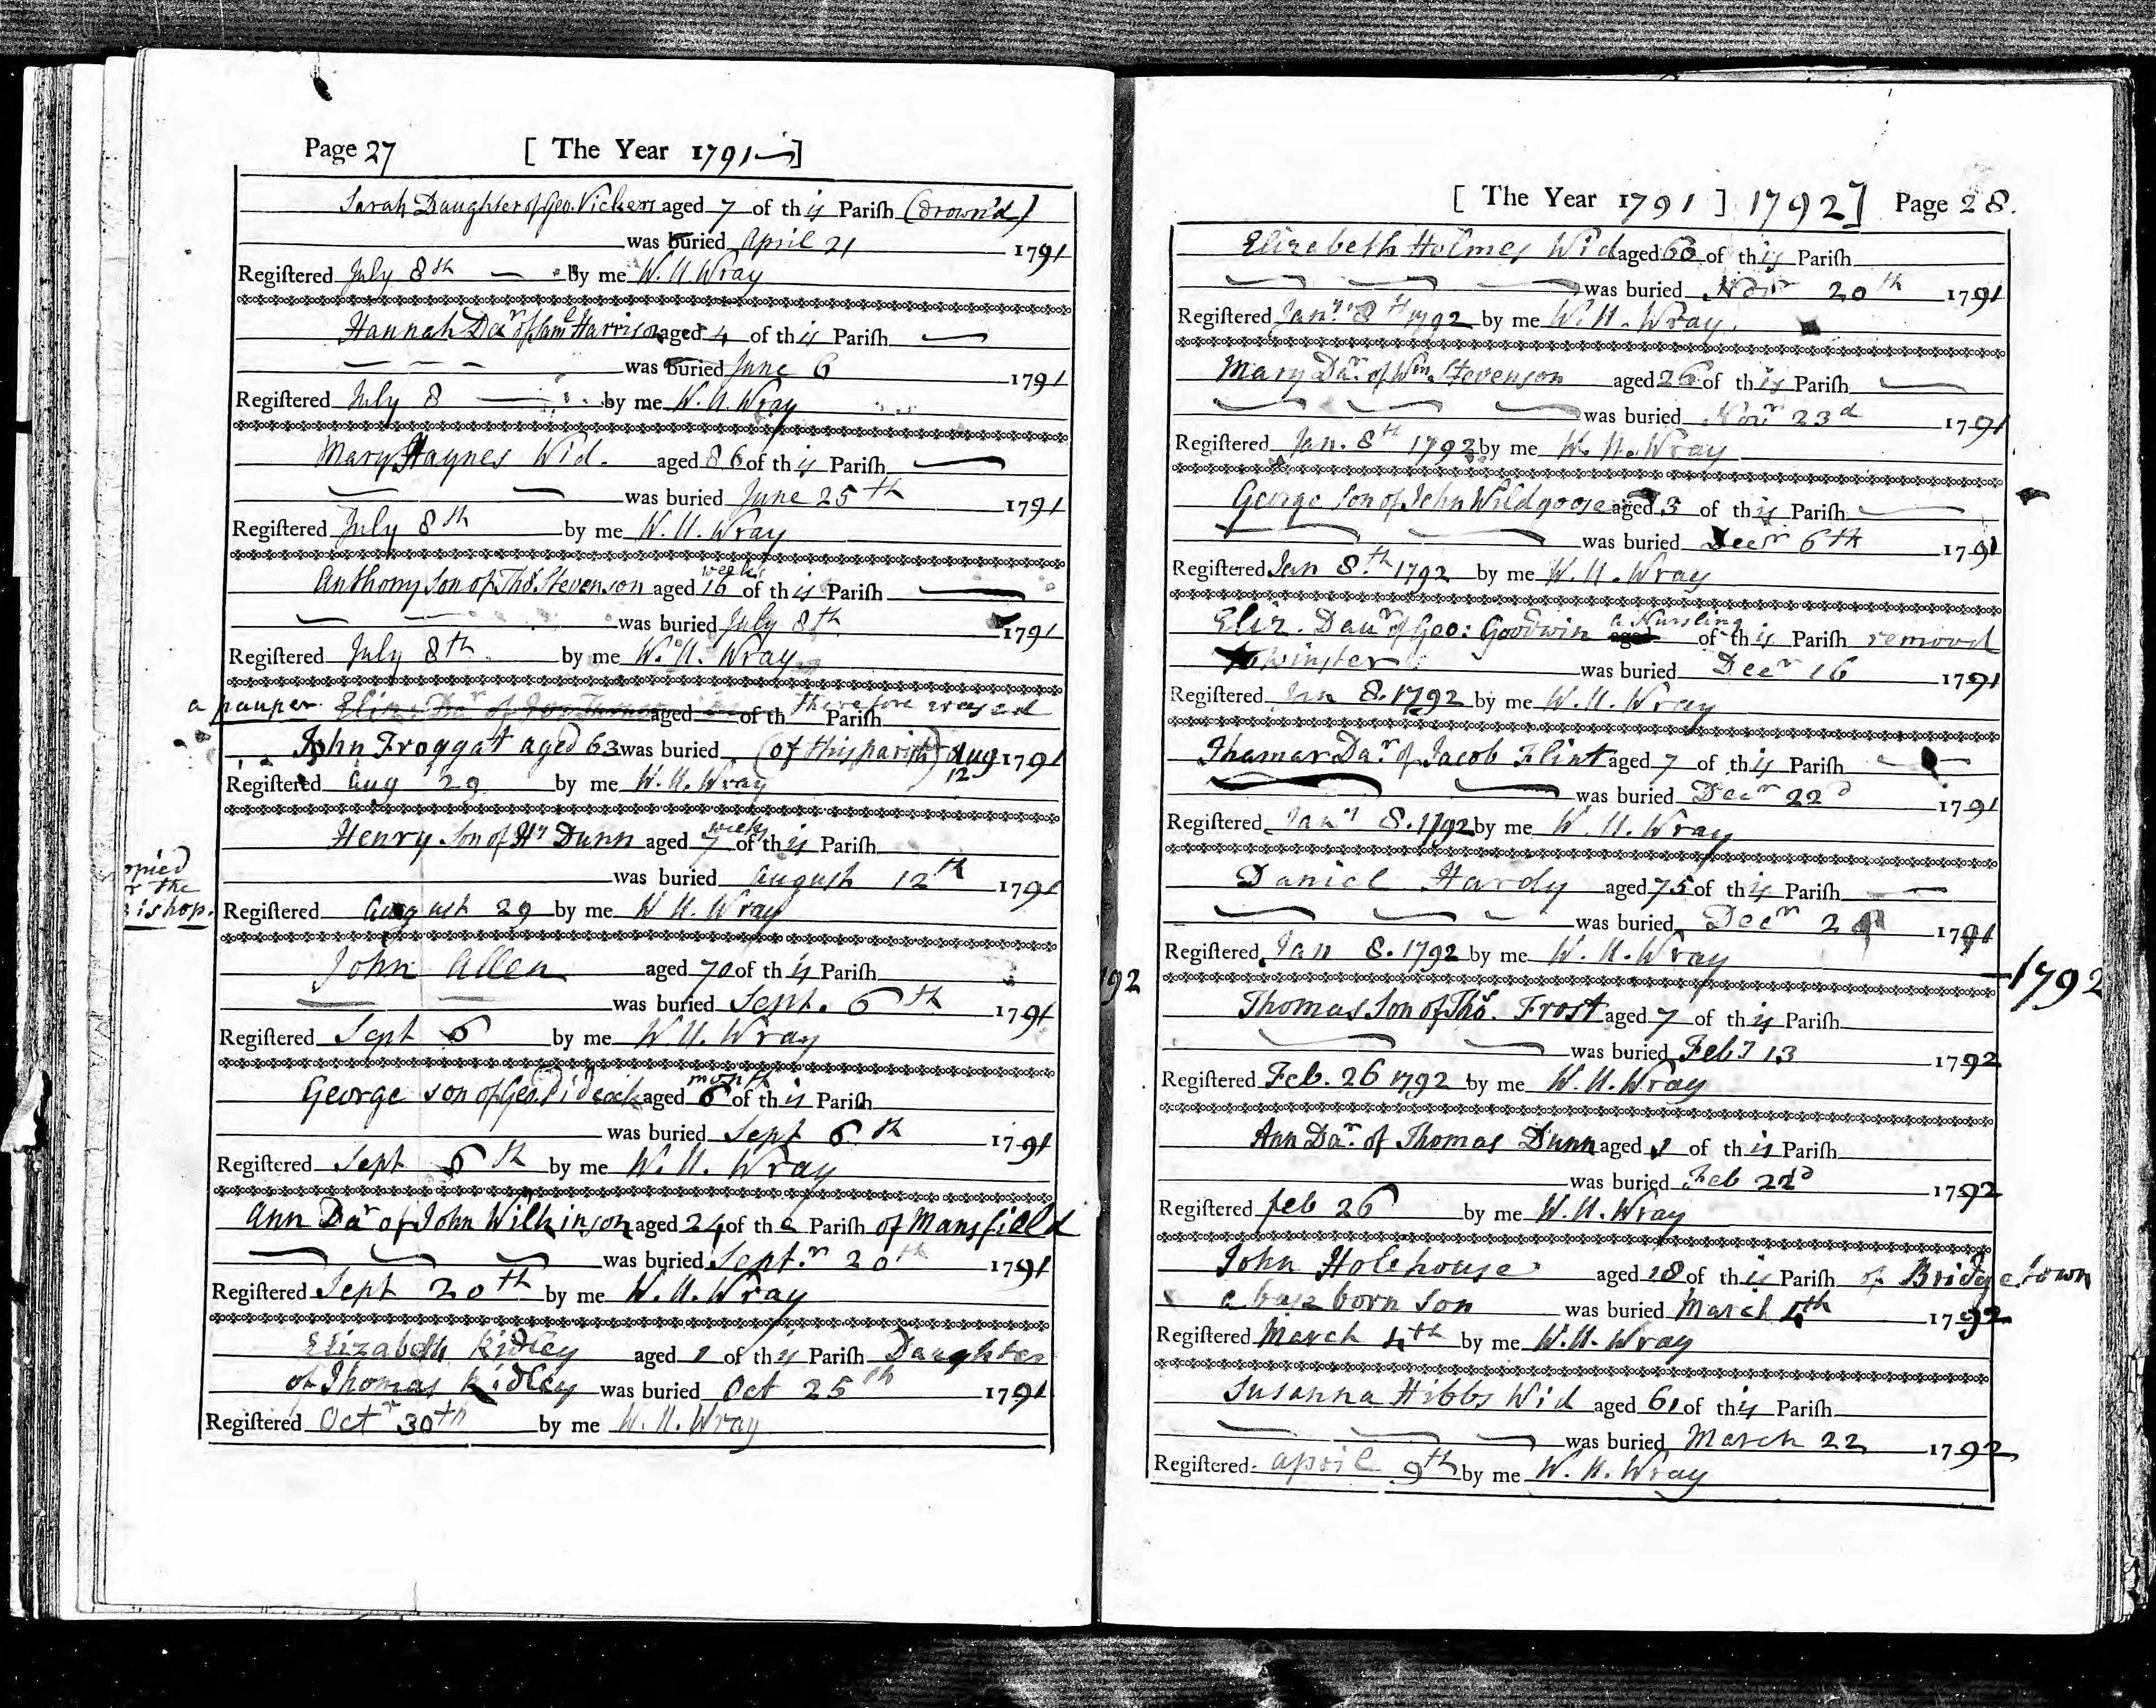 Page 27 [ The Year 1791 ]
Sarah Daughter of Geo. Vickers aged 7 of this Parish (drown'd)
was buried April 21 1791
Registered July 8th By me W. U. Wray
Hannah Dar of Saml Harrison aged 4 of this Parish
was buried June 6 1791
Registered July 8 by me W. U. Wray
Mary Haynes Wid. aged 86 of this Parish
was buried June 25th 1791
Registered July 8th by me W. U. Wray
Anthony Son of Thos. Stevenson aged 16 weeks of this Parish
was buried July 8th 1791
Registered July 8th by me W. U. Wray
a pauper Eliz. Dar of aged of th Parish therefore erased
John Froggat aged 63 was buried (of this parish) Aug 12 1791
Registered Aug 29 by me W. U. Wray
Henry Son of Hy Dunn aged 7 weeks of this Parish
was buried August 12th 1791
opied
r the
ishop.
Registered August 29 by me W U. Wray
John Allen aged 70 of this Parish
was buried Sept. 6th 1791
Registered Sept 6 by me W. U. Wray
George son of Geo. Pidcock aged 6 month of this Parish
was buried Sept 6th 1791
Registered Sept 6th by me W. U. Wray
Ann Dar of John Wilkinson aged 24 of the Parish of Mansfield
was buried Sept.r 20th 1791
Registered Sept 20th by me W. U. Wray
Elizabeth Ridley aged 1 of this Parish Daughter
of Thomas Ridley was buried Oct 25th 1791
Registered Octr 30th by me W. U. Wray
[ The Year 1791 ] 1792 ] Page 28.
Elizabeth Holmes Wid aged 60 of this Parish
was buried Novr 20th 1791
Registered Jany 8th 1792 by me W. U. Wray.
Mary Dar. of Wm. Stevenson aged 26 of this Parish
was buried Novr 23d 1791
Registered Jan. 8th 1792 by me W. U. Wray
George Son of John Wildgoose aged 3 of this Parish
was buried Decr 6th 1791
Registered Jan 8th 1792 by me W. U. Wray
Eliz. Daur of Geo: Goodwin a Nursling aged of this Parish removd
Winster was buried Decr 16 1791
Registered Jan 8. 1792 by me W. U. Wray
Thamar Dar. of Jacob Flint aged 7 of this Parish
was buried Decr 22d 1791
Registered Jany 8. 1792 by me W. U. Wray
Daniel Hardy aged 75 of this Parish
was buried Decr 1791
Registered Jan 8. 1792 by me W. U. Wray
192
1792
Thomas Son of Thos. Frost aged 7 of this Parish
was buried Feby 13 1792
Registered Feb. 26 1792 by me W. U. Wray
Ann Dar. of Thomas Dunn aged 1 of this Parish
was buried Feb 22d 1792
Registered feb 26 by me W. U. Wray
John Holehouse aged 18 of this Parish of Bridgetown
a base born Son was buried March 4th 1792
Registered March 4th by me W. U. Wray
Susanna Hibbs Wid aged 61 of this Parish
was buried March 22 1792
Registered april 9th by me W. U. Wray